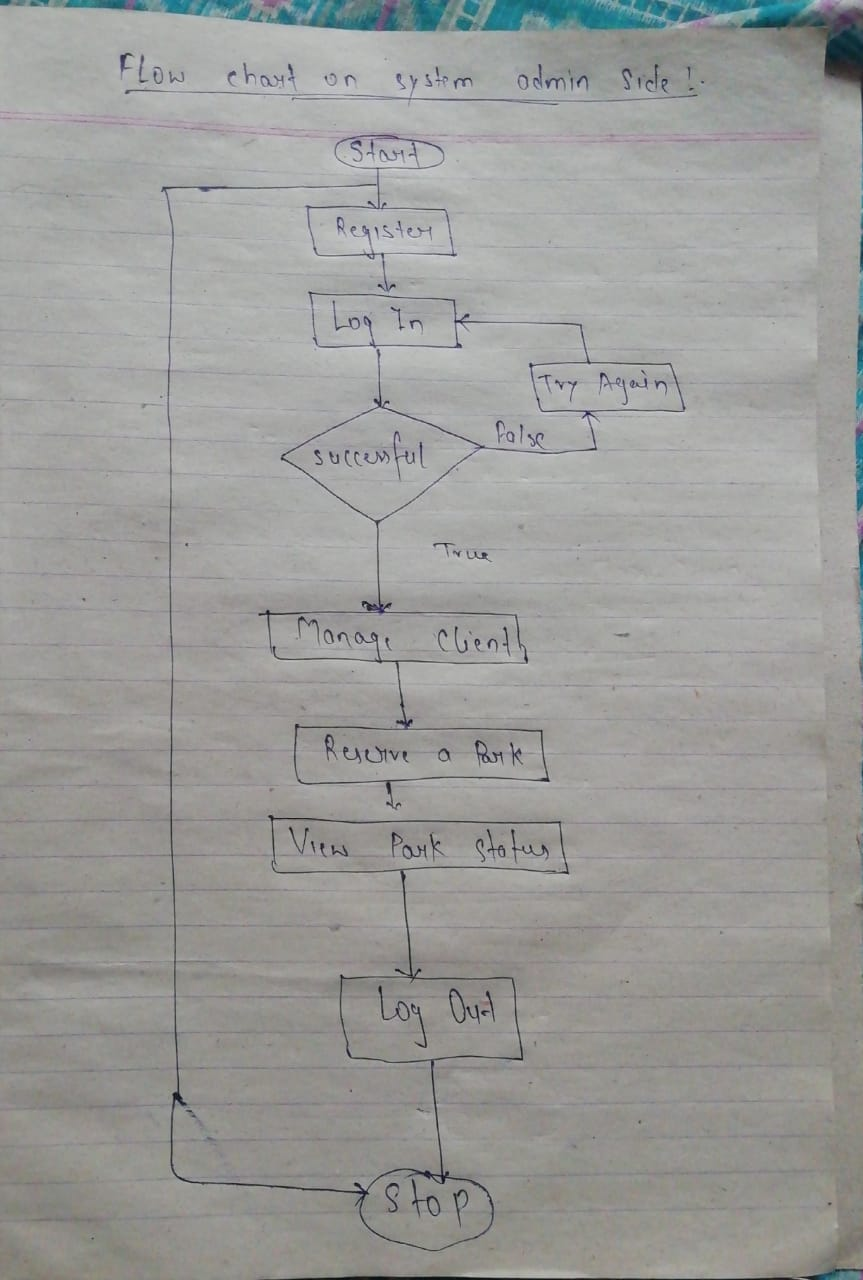 Flow chart on system admin side!.
Start
Register
Log In
Try Again
False
successful
True
Manage Client
Reserve a Park
View Park Status
Log Out
Stop